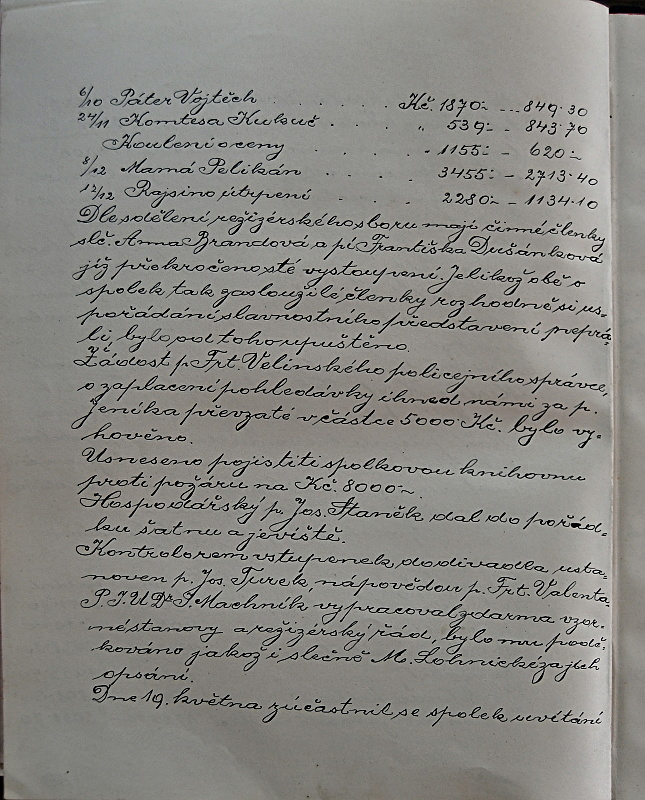 6/10 Páter Vojtěch . . . . . . Kč. 1870.- . . . 849.30
24/11 Komtesa Kukuč . . . . „ 539.- - 843.70
Kouleni oceny . . . . . 1155.- - 620.-
8/12 Mamá Pelikán . . . . 3455.- - 2713.40
12/12 Rajsino útrpení . . . . 2280.- - 1134.10
Dle sdělení režizérského sboru mají činné členky
slč. Anna Brandová a pí. Františka Dušánková
již překročeno sté vystoupení. Jelikož obě o
spolek tak zasloužilé členky rozhodně si us-
pořádání slavnostního představení nepřá-
li, bylo od toho upuštěno.
Žádost p. Frt. Velinského policejního správce,
o zaplacení pohledávky ihned námi za p.
Jeníka převzaté v částce 5000 Kč. bylo vy-
hověno.
Usneseno pojistiti spolkovou knihovnu
proti požáru na Kč. 8000.-
Hospodářský p. Jos. Staněk dal do pořád-
ku šatnu a jeviště.
Kontrolorem vstupenek do divadla usta-
noven p. Jos. Turek, nápovědou p. Frt. Valenta.
P. J.U.Dr. J. Machník vypracoval zdarma vzor-
né stanovy a režizérský řád, bylo mu podě-
kováno jakož i slečně M. Lohnické za jich
opsání.
Dne 19. května zúčastnil se spolek uvítání